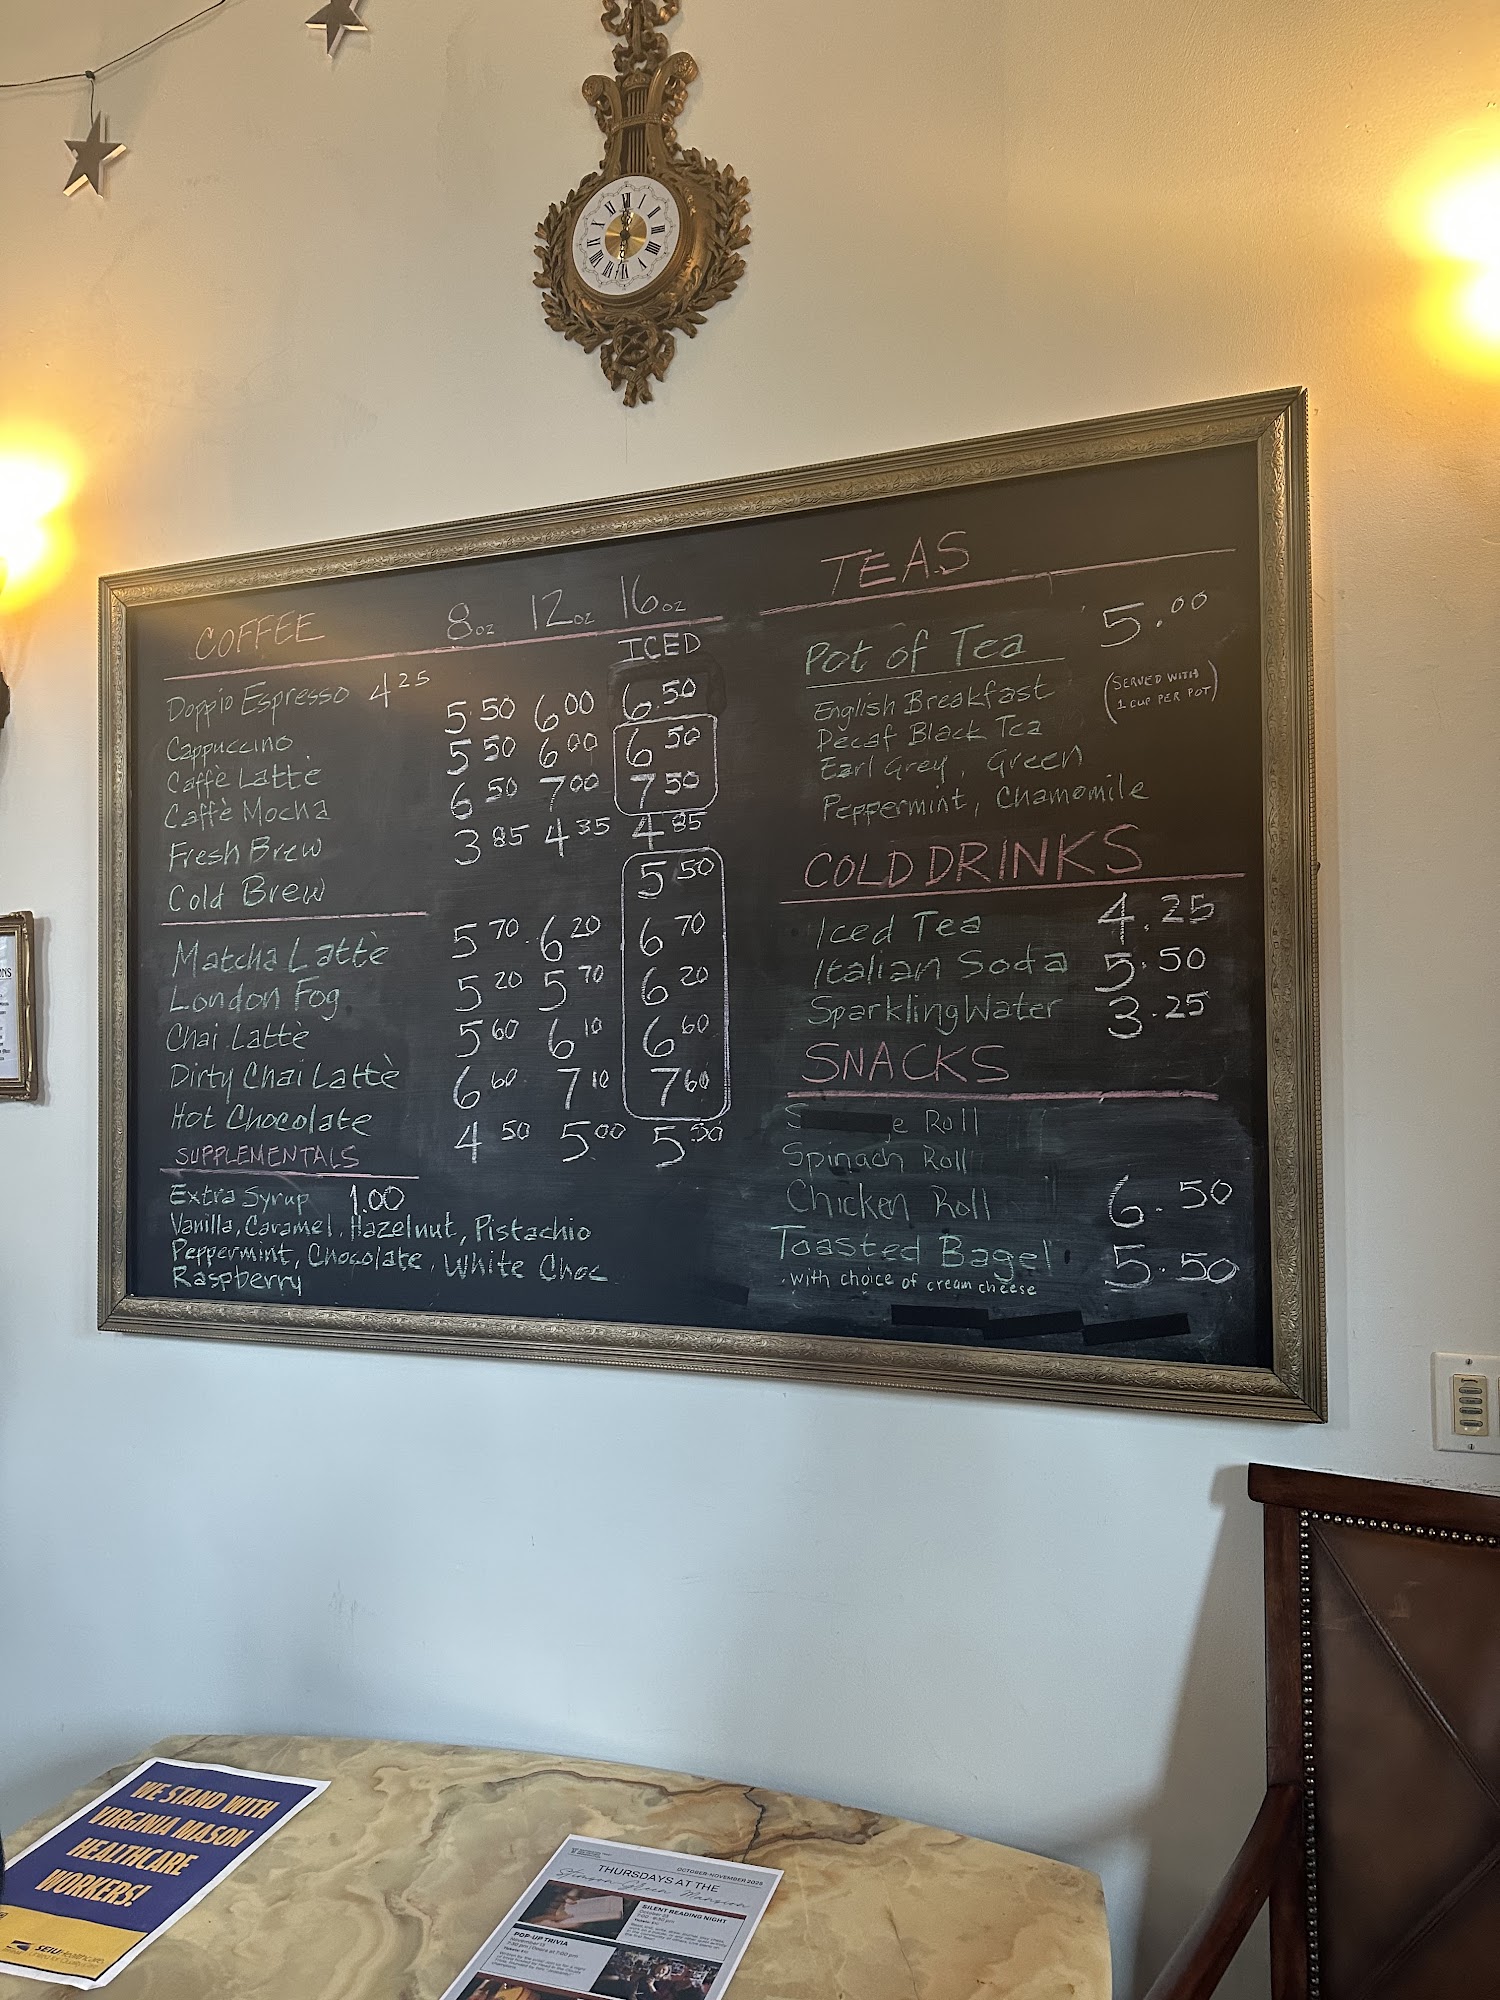 COFFEE 8oz 12oz 16oz
ICED
Doppio Espresso 4 25
Cappuccino 5.50 6 00 6.50
Caffè Lattè 5 50 6 00 6 50
Caffè Mocha 6 50 7 00 7 50
Fresh Brew 3 85 4 35 4 85
Cold Brew 5 50
Matcha Lattè 5 70 6 20 6 70
London Fog 5 20 5 70 6 20
Chai Lattè 5 60 6 10 6 60
Dirty Chai Lattè 6 60 7 10 7 60
Hot Chocolate 4 50 5 00 5 50
SUPPLEMENTALS
Extra Syrup 1.00
Vanilla, Caramel, Hazelnut, Pistachio
Peppermint, Chocolate, White Choc
Raspberry
TEAS
Pot of Tea 5.00
(SERVED WITH
1 CUP PER POT)
English Breakfast
Decaf Black Tea
Earl Grey, Green
Peppermint, Chamomile
COLD DRINKS
Iced Tea 4.25
Italian Soda 5.50
Sparkling Water 3.25
SNACKS
Roll
Spinach Roll
Chicken Roll 6.50
Toasted Bagel 5.50
with choice of cream cheese
WE STAND WITH
VIRGINIA MASON
HEALTHCARE
WORKERS!
SEIU Healthcare
OCTOBER-NOVEMBER 2025
THURSDAYS AT THE
Stimson-Green Mansion
SILENT READING NIGHT
October 23
POP-UP TRIVIA
November 13
7:30 pm | Doors at 7:00 pm
XII I II III IIII V VI VII VIII IX X XI